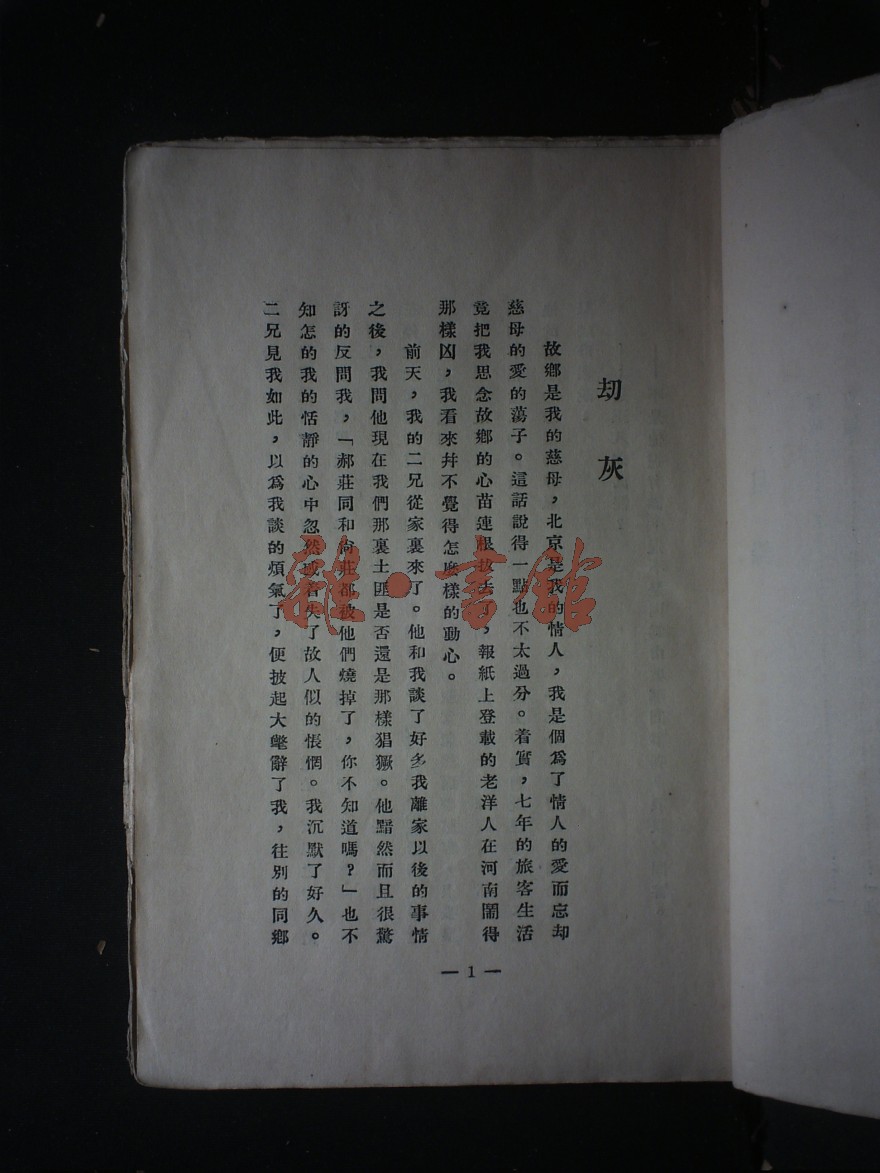 刧灰
故鄉是我的慈母，北京是我的情人，我是個爲了情人的愛而忘却
慈母的愛的蕩子。這話說得一點也不太過分。着實，七年的旅客生活
竟把我思念故鄉的心苗連根拔去了，報紙上登載的老洋人在河南鬧得
那樣凶，我看來幷不覺得怎麽樣的動心。
前天，我的二兄從家裏來了。他和我談了好多我離家以後的事情
之後，我問他現在我們那裏土匪是否還是那樣猖獗。他黯然而且很驚
訝的反問我，「郝莊同和尙莊都被他們燒掉了，你不知道嗎？」也不
知怎的我的恬靜的心中忽然或者失了故人似的悵惘。我沉默了好久。
二兄見我如此，以爲我談的煩氣了，便披起大氅辭了我，往別的同鄉
— 1 —
雜·書館